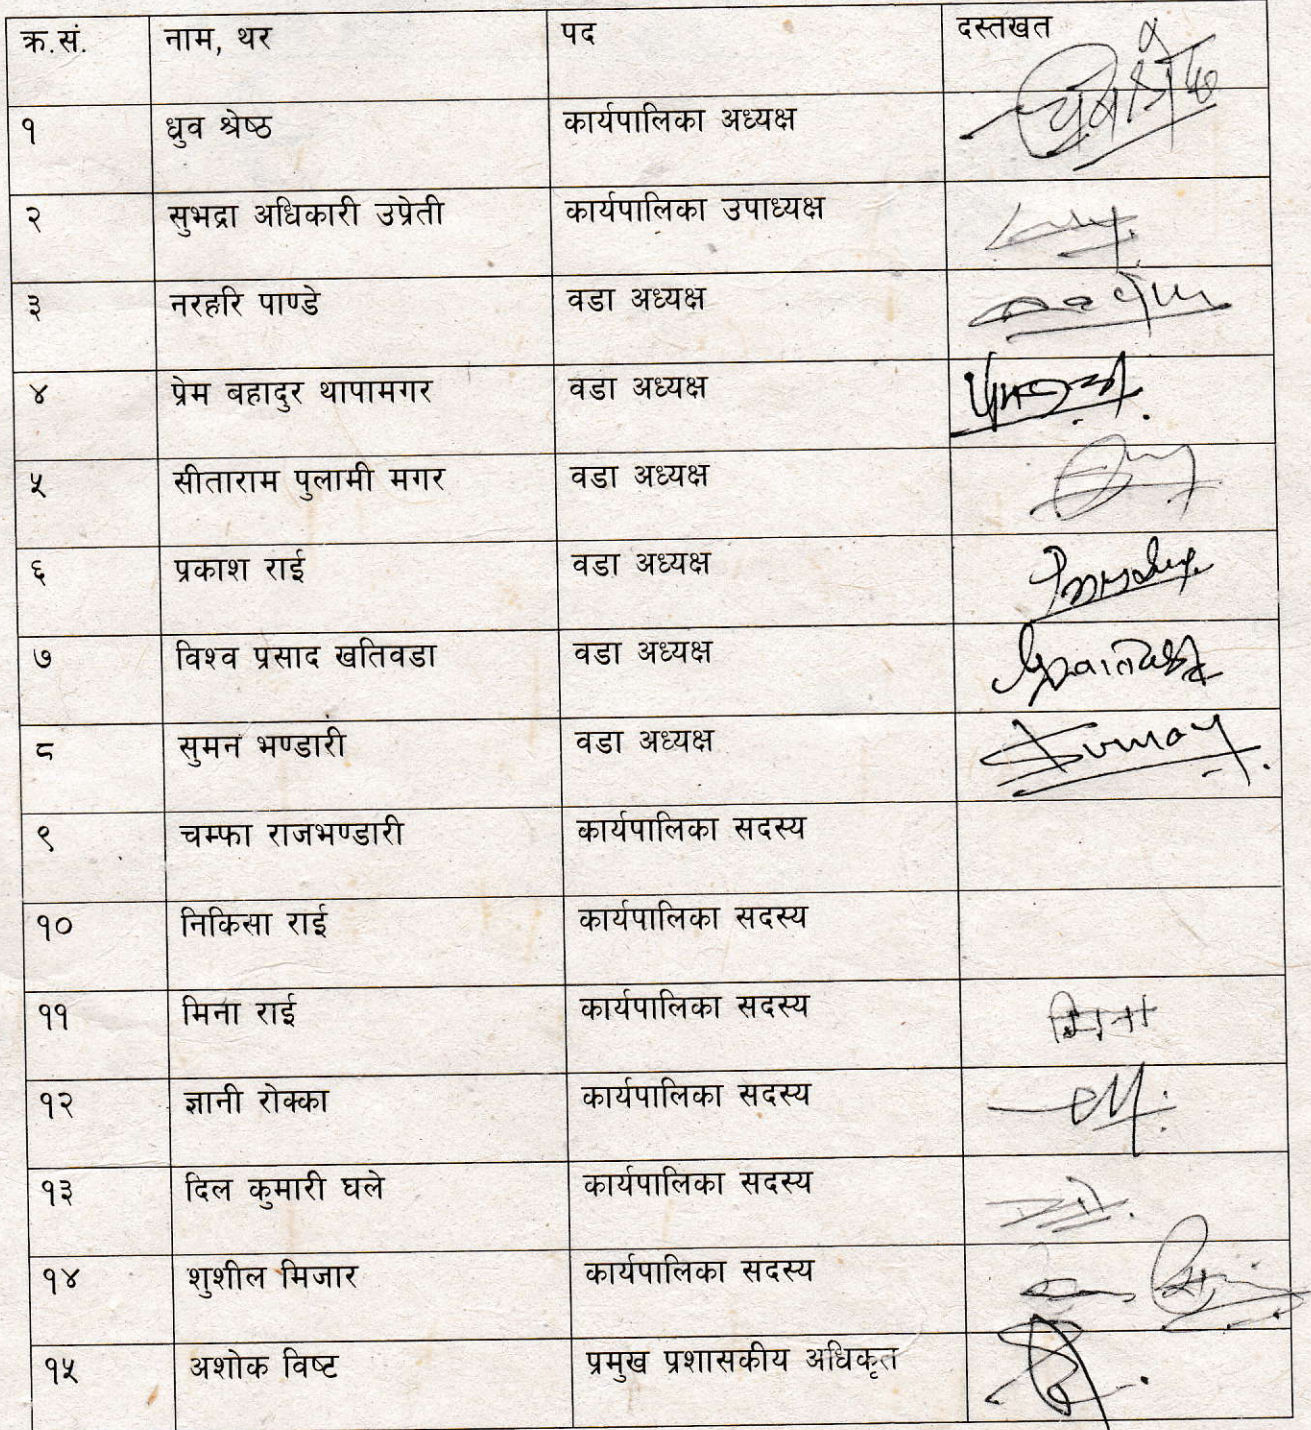 क्र.सं. नाम, थर पद दस्तखत
१ ध्रुव श्रेष्ठ कार्यपालिका अध्यक्ष
२ सुभद्रा अधिकारी उप्रेती कार्यपालिका उपाध्यक्ष
३ नरहरि पाण्डे वडा अध्यक्ष
४ प्रेम बहादुर थापामगर वडा अध्यक्ष
५ सीताराम पुलामी मगर वडा अध्यक्ष
६ प्रकाश राई वडा अध्यक्ष
७ विश्व प्रसाद खतिवडा वडा अध्यक्ष
८ सुमन भण्डारी वडा अध्यक्ष
९ चम्फा राजभण्डारी कार्यपालिका सदस्य
१० निकिसा राई कार्यपालिका सदस्य
११ मिना राई कार्यपालिका सदस्य मिना
१२ ज्ञानी रोक्का कार्यपालिका सदस्य
१३ दिल कुमारी घले कार्यपालिका सदस्य
१४ शुशील मिजार कार्यपालिका सदस्य
१५ अशोक विष्ट प्रमुख प्रशासकीय अधिकृत